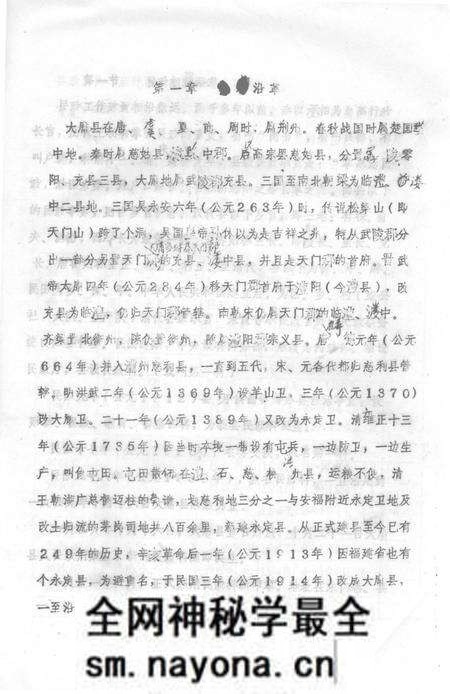 第一章 沿革
大庸县在唐、虞、夏、商、周时，属荆州。春秋战国时属楚国
中地。秦时属慈姑县，黔中郡。后高宗罢慈姑县，分置零
阳、充县三县，大庸地属武陵郡充县。三国至南北朝梁为临澧、溇
中二县地。三国吴永安六年（公元263年）时，传说松梁山（即
天门山）跨了个洞，吴国皇帝孙休以为是吉祥之兆，特从武陵郡分
出一部分另置天门郡的充县、溇中县，并且是天门郡的首府。晋武
帝太康四年（公元284年）移天门郡首府于澧阳（今澧县），改
充县为临澧，仍归天门郡管辖。南朝宋仍属天门郡的临澧、溇中。
齐置北衡州，陈仍置衡州，隋属澧阳郡崇义县。唐 公元年（公元
664年）并入澧州慈利县，一直到五代，宋、元各代都归慈利县管
辖。明洪武二年（公元1369年）设羊山卫，三年（公元1370）
改大庸卫。二十一年（公元1389年）又改为永定卫。清雍正十三
年（公元1735年）因当时本境一带设有屯兵，一边防卫，一边生
产，叫做屯田。屯田散怀在澧、石、慈、桃 九县，运粮不便，清
王朝湖广总督迈柱的奏请，划慈利地三分之一与安福附近永定卫地及
改土归流的茅岗司地共八百余里，都建永定县。从正式建县至今已有
249年的历史，辛亥革命后一年（公元1913年）因福建省也有
个永定县，为避重名，于民国三年（公元1914年）改成大庸县，
一至沿
全网神秘学最全
sm.nayona.cn